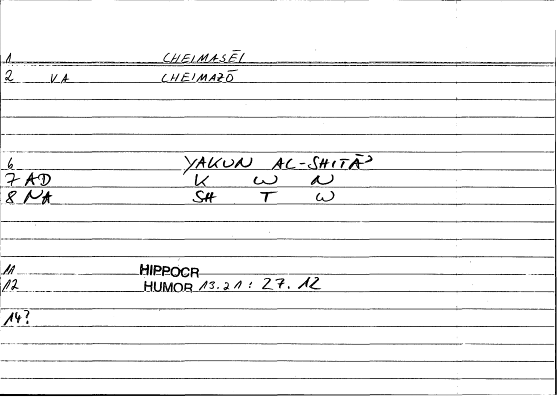 1 CHEIMASĒI
2 VA CHEIMAZŌ
6 YAKUN AL-SHITĀʾ
7 AD K W N
8 NA SH T W
11 HIPPOCR
12 HUMOR 13.21 : 27.12
14?